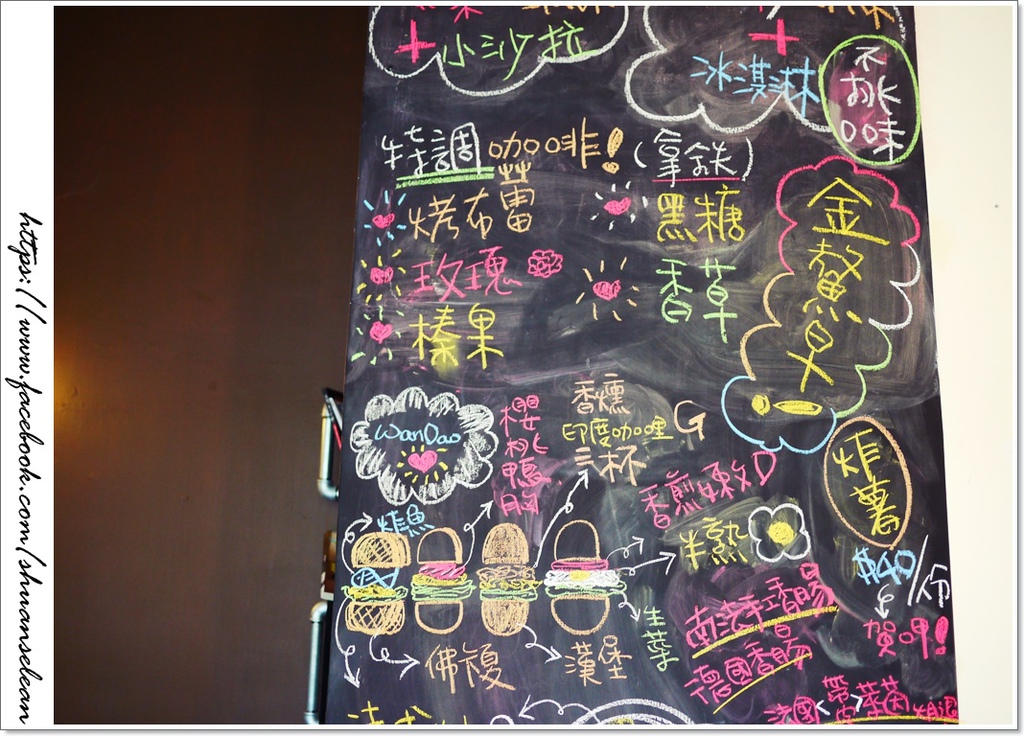 +小沙拉
+
冰淇淋
不挑口味
特調咖啡！(拿鐵)
烤布蕾
黑糖
玫瑰
香草
榛果
金鰲
WanDao
櫻桃鴨胸
香燻
印度咖哩
三杯
G
香煎嫩
D
炸魚
半熟
炸薯
$40/份
賀呷!
生菜
佛
漢堡
南法手工香腸
德國香腸
法國
帶皮
https://www.facebook.com/shuanselean